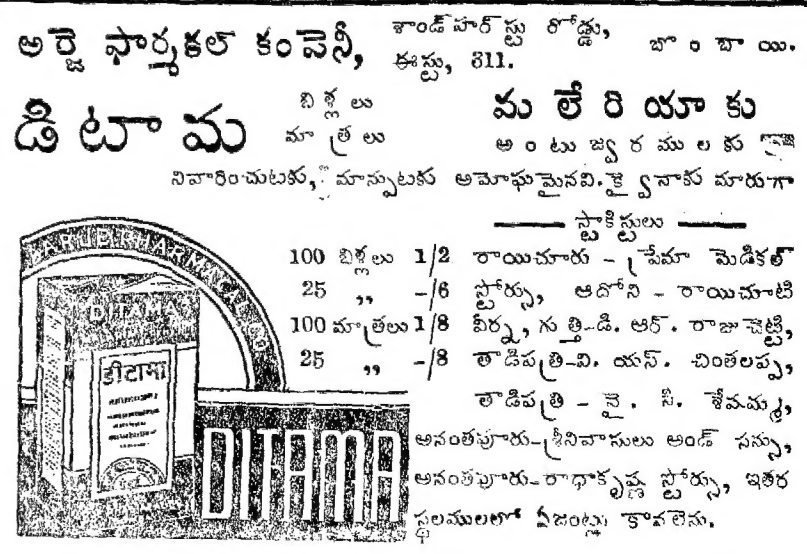 అర్జె ఫార్మకల్ కంపెనీ, శాండ్‌హర్‌స్టు రోడ్డు, ఈస్టు, 311. బొంబాయి.
డిటామ బిళ్లలు మాత్రలు మలేరియాకు
అంటుజ్వరములకు
నివారించుటకు, మాన్పుటకు అమోఘమైనవి. క్వైనాకు మారుగా
స్టాకిస్టులు
100 బిళ్లలు 1/2 రాయిచూరు - ప్రేమా మెడికల్
25 ,, -/6 స్టోర్సు, ఆదోని - రాయిచూటి
100 మాత్రలు 1/8 వీర్న, గుత్తి-డి. ఆర్. రాజుచెట్టి,
25 ,, -/8 తాడిపత్రి-వి. యస్. చింతలప్ప,
తాడిపత్రి - వై. సి. శేవమ్మ,
అనంతపూరు-శ్రీనివాసులు అండ్ సన్సు,
అనంతపూరు-రాధాకృష్ణ స్టోర్సు, ఇతర
స్థలములలో ఏజంట్లు కావలెను.
ARJE PHARMACAL CO
DITAMA
डीटामा
DITAMA